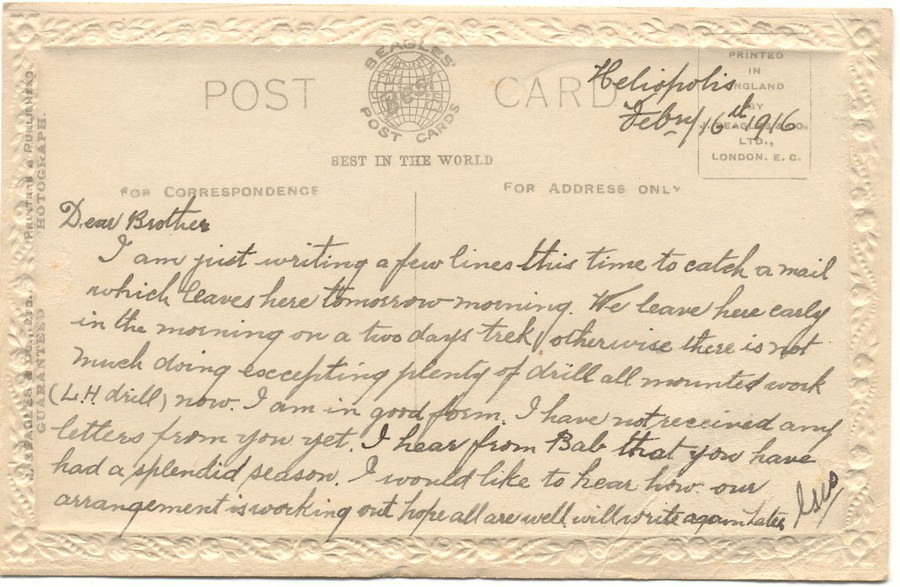 BEAGLES'
BEST
POST CARDS
POST CARD
BEST IN THE WORLD
PRINTED
IN
ENGLAND
BY
J. BEAGLES & CO.
LTD.,
LONDON. E. C.
FOR CORRESPONDENCE
FOR ADDRESS ONLY
J. BEAGLES & CO., LTD. PRINTERS & PUBLISHERS
GUARANTEED HOTOGRAPH.
Heliopolis
Febry 16th 1916
Dear Brother
I am just writing a few lines this time to catch a mail
which leaves here tomorrow morning. We leave here early
in the morning on a two days trek, otherwise there is not
much doing excepting plenty of drill all mounted work
(L.H. drill) now. I am in good form. I have not received any
letters from you yet. I hear from Bab that you have
had a splendid season. I would like to hear how our
arrangement is working out hope all are well will write again Later